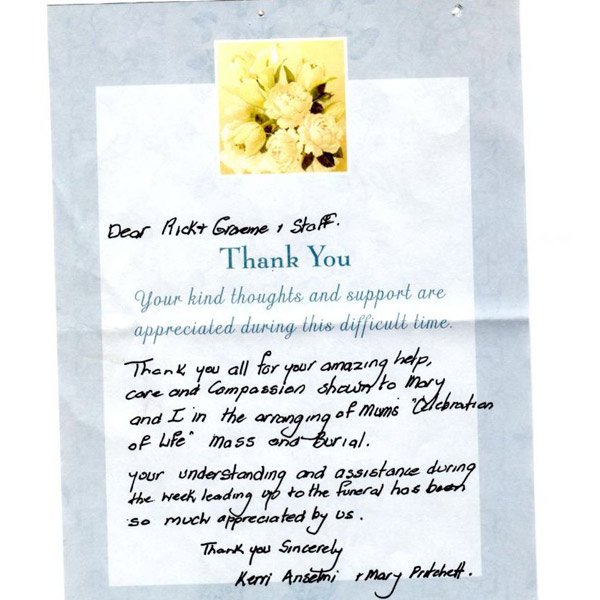 Dear Rick + Graeme + Staff.
Thank You
Your kind thoughts and support are
appreciated during this difficult time.
Thank you all for your amazing help,
care and Compassion shown to Mary
and I in the arranging of Mum's "Celebration
of Life" Mass and Burial.
your understanding and assistance during
the week leading up to the funeral has been
so much appreciated by us.
Thank you Sincerely
Kerri Anselmi + Mary Pritchett.